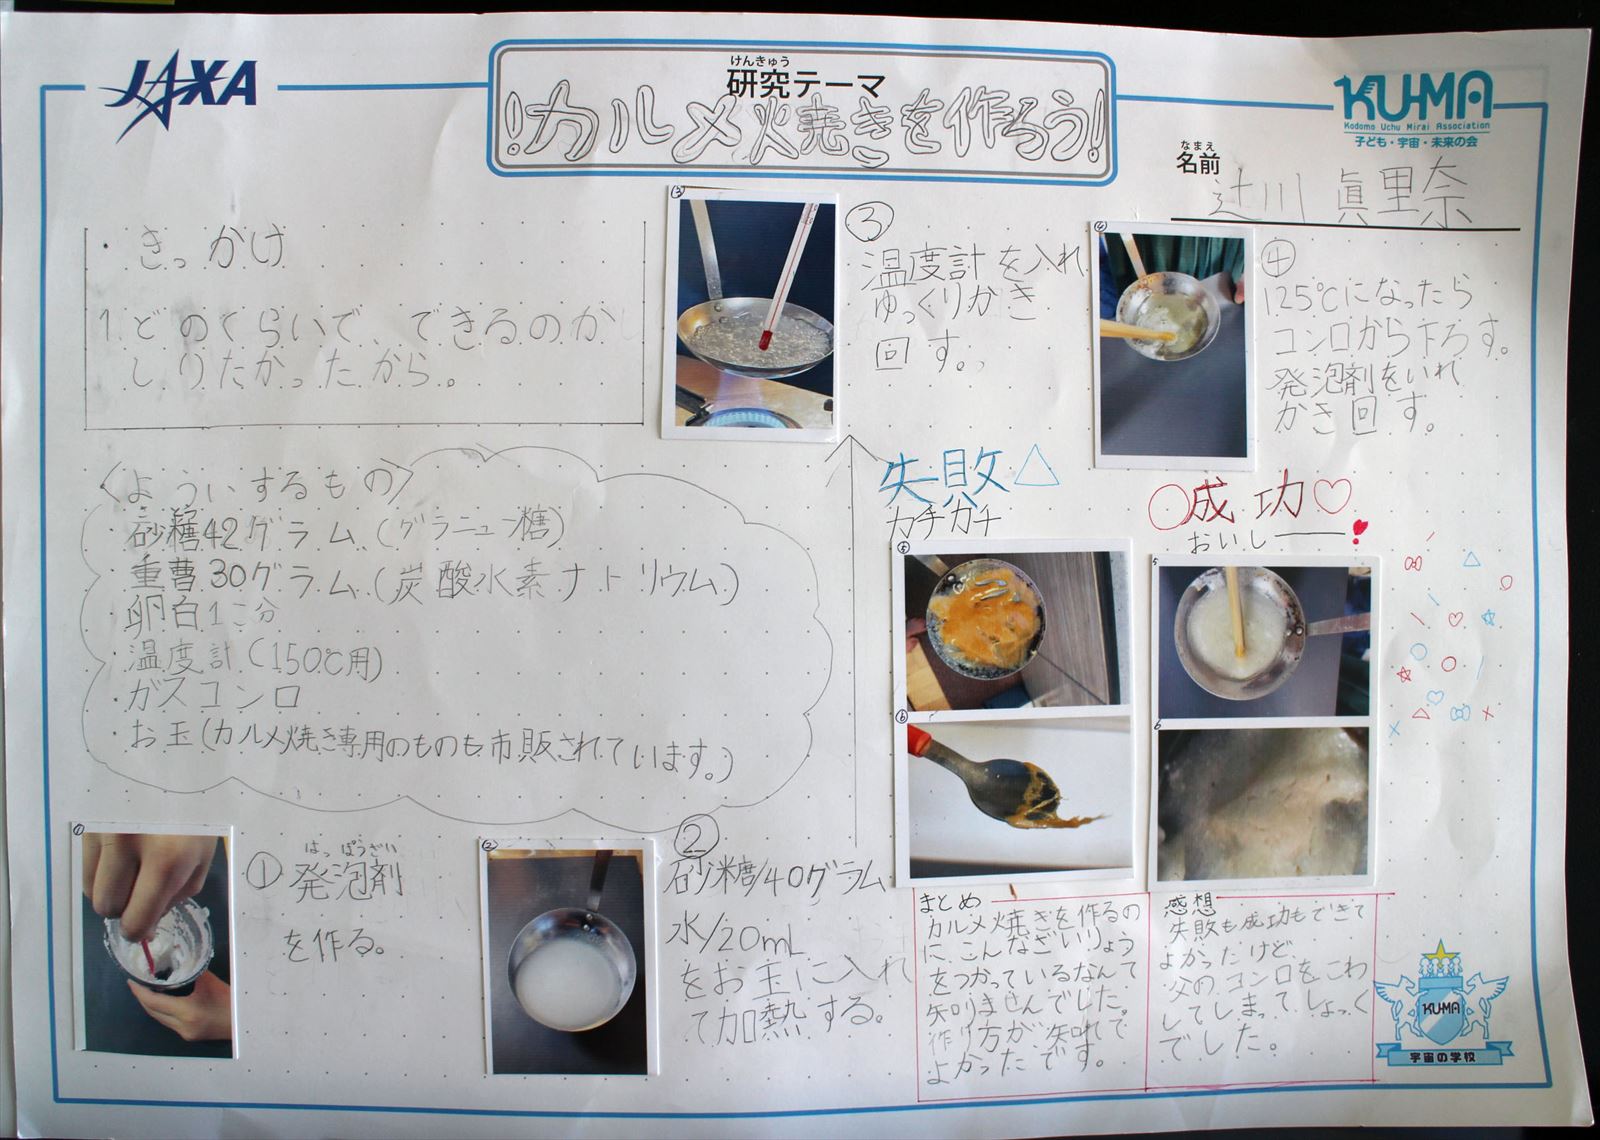 JAXA
けんきゅう
研究テーマ
!カルメ焼きを作ろう!
KU-MA
Kodomo Uchu Mirai Association
子ども・宇宙・未来の会
なまえ
名前
辻川 眞里奈
・きっかけ
1.どのくらいで、できるのか
しりたかったから。
<よういするもの>
さとう
砂糖42グラム(グラニュー糖)
重曹30グラム(炭酸水素ナトリウム)
卵白1こ分
温度計(150℃用)
ガスコンロ
お玉(カルメ焼き専用のものも市販されています。)
①
①
はっぽうざい
発泡剤
を作る。
②
②
砂糖/40グラム
水/20mL
をお玉に入れ
て加熱する。
③
③
温度計を入れ
ゆっくりかき
回す。
④
④
125℃になったら
コンロから下ろす。
発泡剤をいれ
かき回す。
失敗△
カチカチ
⑤
⑥
○成功♡
おいしー!
5
6
まとめ
カルメ焼きを作るの
に、こんなざいりょう
をつかっているなんて
知りませんでした。
作り方が、知れて
よかったです。
感想
失敗も成功もできて
よかったけど、
父のコンロをこわ
してしまってしょっく
でした。
KU-MA
宇宙の学校